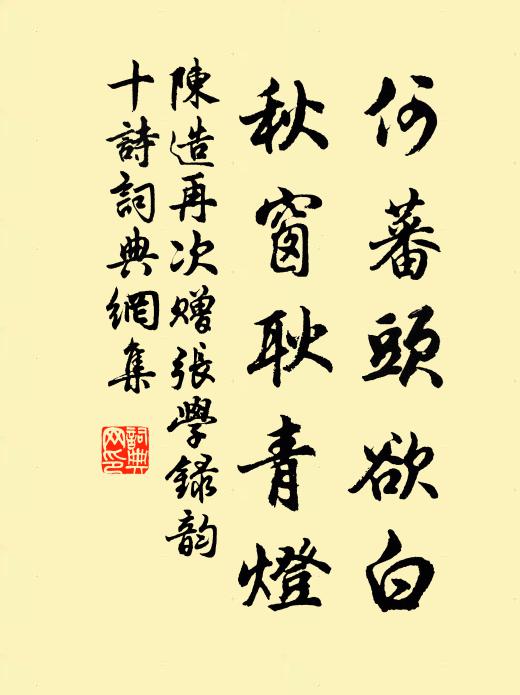 何蕃頭欲白
秋窗耿青燈
陳造再次贈張學録韵
十詩詞典網集
詞典网印